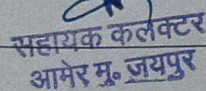 सहायक कलेक्टर
आमेर मु० जयपुर